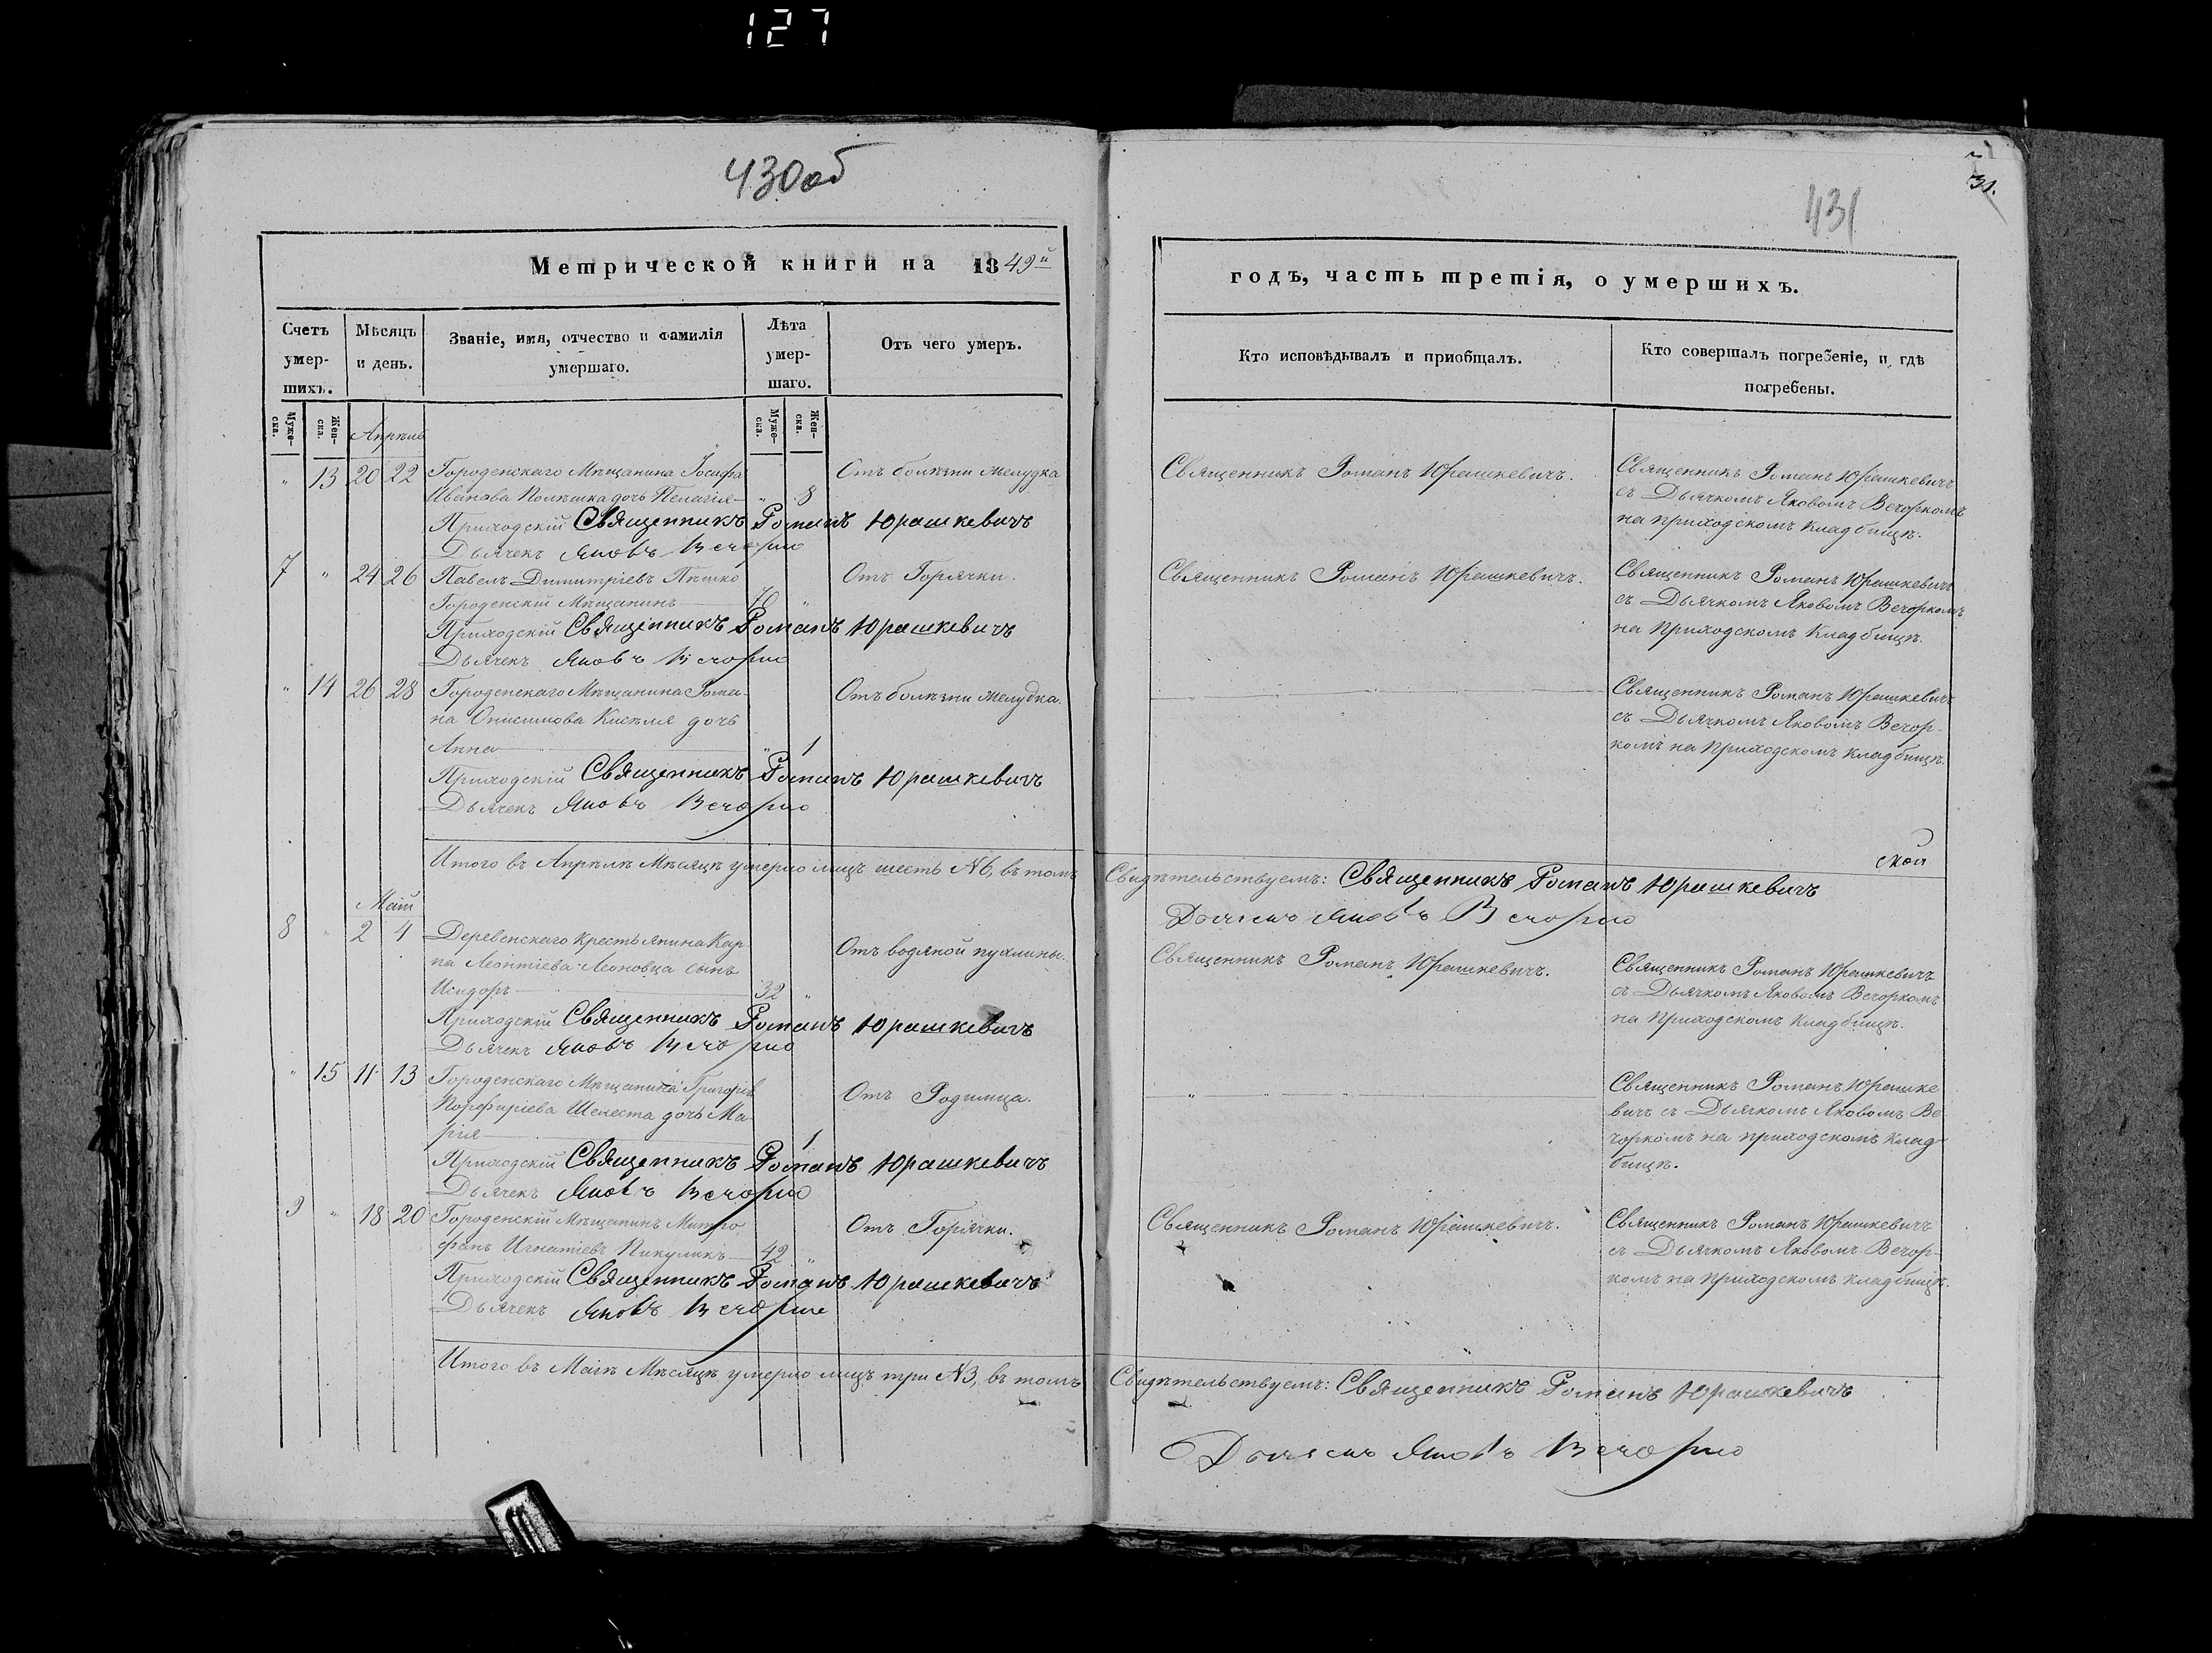 127
430 об
431
31.
Метрической книги на 1849й
годъ, часть третія, о умершихъ.
Счетъ умер-шихъ.
Мѣсяцъ и день.
Званіе, имя, отчество и фамилія умершаго.
Лѣта умер-шаго.
Отъ чего умеръ.
Кто исповѣдывалъ и приобщалъ.
Кто совершалъ погребеніе, и гдѣ погребены.
Муже-ска.
Жен-ска.
Муже-ска.
Жен-ска.
Апрѣль
" 13 20 22 Городенскаго Мѣщанина Іосифа
Иванова дочь Пелагія — " 8
Отъ болѣзни желудка
Священникъ Романъ Юрашкевичъ.
Священникъ Романъ Юрашкевичъ
съ Дьячкомъ Яковомъ Вечоркомъ
на приходскомъ Кладбищѣ.
Приходскій Священникъ Романъ Юрашкевичъ
Дьячекъ Яковъ Вечорко
7 " 24 26 Павелъ Димитріевъ Пѣшко
Городенскій Мѣщанинъ — 70 "
Отъ Горячки.
Священникъ Романъ Юрашкевичъ.
Священникъ Романъ Юрашкевичъ
съ Дьячкомъ Яковомъ Вечоркомъ
на Приходскомъ Кладбищѣ.
Приходскій Священникъ Романъ Юрашкевичъ
Дьячекъ Яковъ Вечорко
" 14 26 28 Городенскаго Мѣщанина Рома-
на Онисимова Киселя дочь
Анна — " 1
Отъ болѣзни желудка.
Священникъ Романъ Юрашкевичъ
съ Дьячкомъ Яковомъ Вечор-
комъ на Приходскомъ Кладбищѣ.
Приходскій Священникъ Романъ Юрашкевичъ
Дьячекъ Яковъ Вечорко
Итого въ Апрѣлѣ Мѣсяцѣ умерло лицъ шесть N6, въ томъ
ской
Свидѣтельствуемъ: Священникъ Романъ Юрашкевичъ
Дьячекъ Яковъ Вечорко
Май
8 " 2 4 Деревенскаго Крестьянина Кар
па Леонтіева Леоновца сынъ
Исидоръ — 32 "
Отъ водяной пухлины.
Священникъ Романъ Юрашкевичъ.
Священникъ Романъ Юрашкевичъ
съ Дьячкомъ Яковомъ Вечоркомъ
на Приходскомъ Кладбищѣ.
Приходскій Священникъ Романъ Юрашкевичъ
Дьячекъ Яковъ Вечорко
" 15 11 13 Городенскаго Мѣщанина Григорія
Порфиріева Шелеста дочь Ма
рія — 1
Отъ Родимца.
Священникъ Романъ Юрашке
вичъ съ Дьячкомъ Яковомъ Ве
чоркомъ на приходскомъ клад
бищѣ.
Приходскій Священникъ Романъ Юрашкевичъ
Дьячекъ Яковъ Вечорко
9 " 18 20 Городенскій Мѣщанинъ Митро
фанъ Игнатіевъ Пикуликъ — 42 "
Отъ Горячки.
Священникъ Романъ Юрашкевичъ.
Священникъ Романъ Юрашкевичъ
съ Дьячкомъ Яковомъ Вечор-
комъ на Приходскомъ кладбищѣ.
Приходскій Священникъ Романъ Юрашкевичъ
Дьячекъ Яковъ Вечорко
Итого въ Маіѣ Мѣсяцѣ умерло лицъ три N3, въ томъ
Свидѣтельствуемъ: Священникъ Романъ Юрашкевичъ
Дьячекъ Яковъ Вечорко